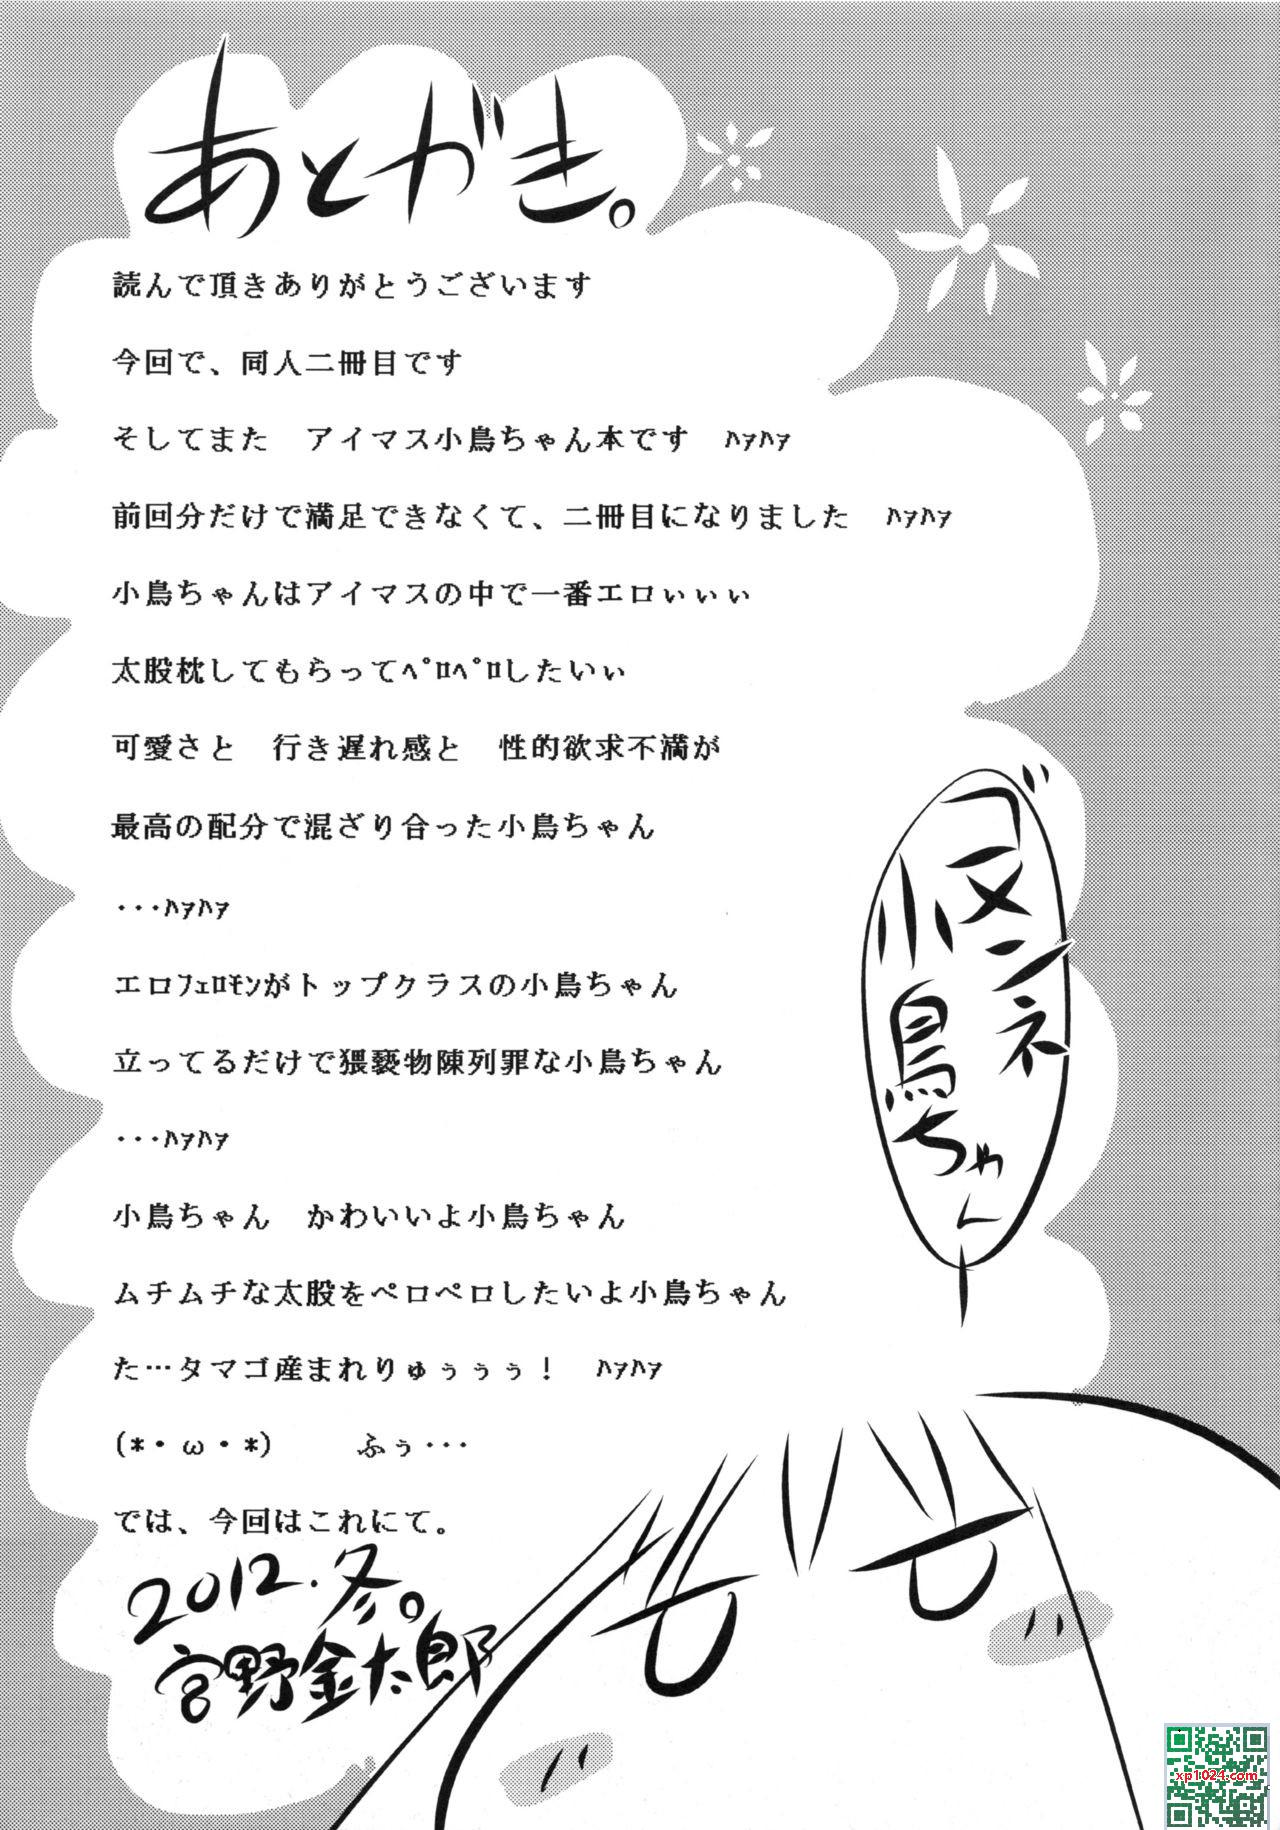 あとがき。
読んで頂きありがとうございます
今回で、同人二冊目です
そしてまた　アイマス小鳥ちゃん本です　ﾊｧﾊｧ
前回分だけで満足できなくて、二冊目になりました　ﾊｧﾊｧ
小鳥ちゃんはアイマスの中で一番エロぃぃぃ
太股枕してもらってﾍﾟﾛﾍﾟﾛしたいぃ
可愛さと　行き遅れ感と　性的欲求不満が
最高の配分で混ざり合った小鳥ちゃん
･･･ﾊｧﾊｧ
エロﾌｪﾛﾓﾝがトップクラスの小鳥ちゃん
立ってるだけで猥褻物陳列罪な小鳥ちゃん
･･･ﾊｧﾊｧ
小鳥ちゃん　かわいいよ小鳥ちゃん
ムチムチな太股をペロペロしたいよ小鳥ちゃん
た…タマゴ産まれりゅぅぅぅ！　ﾊｧﾊｧ
(*・ω・*)　　ふぅ･･･
では、今回はこれにて。
2012.冬。
宮野金太郎
ゴメンネ
小鳥ちゃんー
xp1024.com